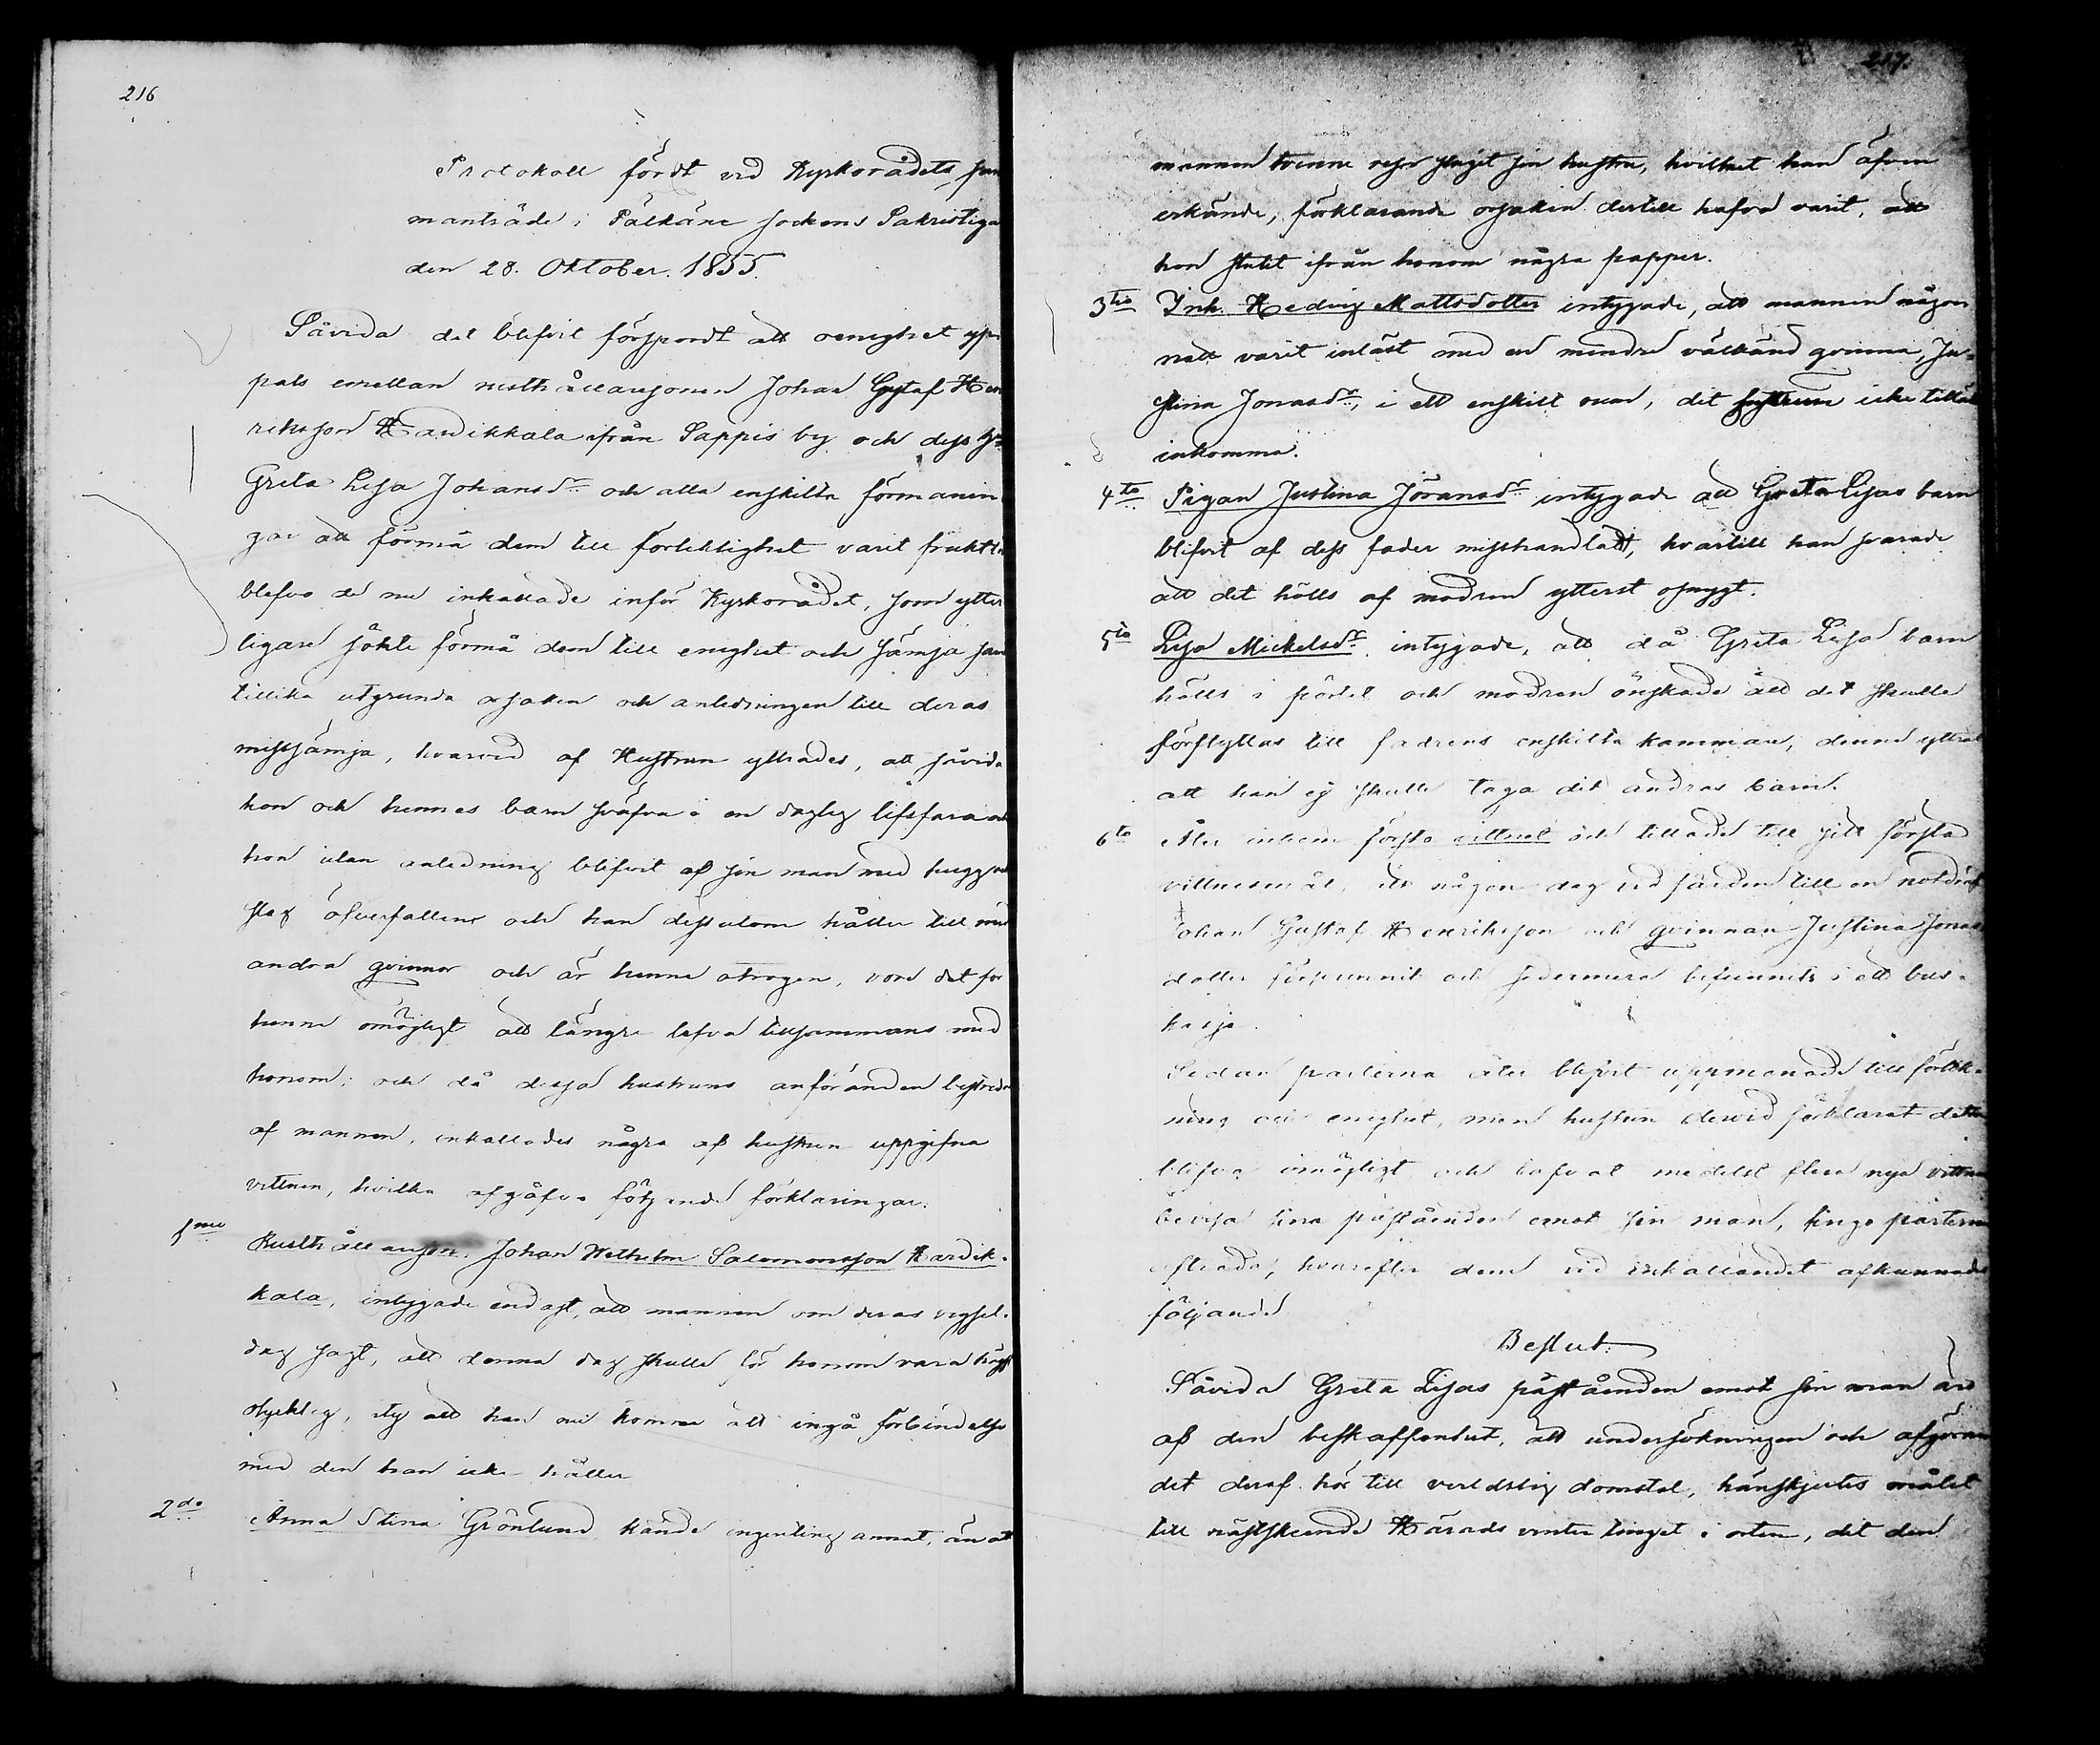 216
Protokoll fördt vid Kyrkorådets sam
manträde i Pälkäne Sockens Sakristiga
den 28. Oktober. 1855.
Såvida det blifvit försport att oenighet yp
pats emellan rusthållaresonen Johan Gustaf Hen
riksson Hardikkala ifrån Sappis by och dess h:u
Greta Lisa Johansd:r och alla enskilta förmanin
gar att förmå dem till förliklighet varit frukt
blefvo de nu inkallade inför Kyrkorådet, som ytter
ligare sökte förmå dem till enighet och sämja sam
tillika utgrunda orsaken och anledningen till deras
missämja, hvarvid af Hustrun yttrades, att såvida
hon och hennes barn sväfva i en daglig lifsfara och
hon utan anledning blifvit af sin man med hugg och
slag öfverfallen och han dessutom håller till med
andra qvinnor och är henne otrogen, vore det för
henne omöjligt att längre lefva tillsammans med
honom; och då dessa hustruns anföranden bestredos
af mannen, inkallades några af hustrun uppgifna
vittnen, hvilka afgåfvo följande förklaringar.
1mo Rusthållaresonen Johan Wilhelm Salomonsson Hardik-
kala, intygade endast, att mannen om deras vigsel-
dag sagt, att denna dag skulle för honom vara högst
olycklig, ity att han nu komme att ingå förbindelse
med den han icke håller
2do Anna Stina Grönlund hände ingenting annat, än att
217.
mannen tvenne resor slagit sin hustru, hvilket han äfven
erkände, förklarande orsaken dertill hafva varit, att
hon stulit ifrån honom några papper.
3tio Inh. Hedvig Mattsdotter intygade, att mannen någon
natt varit inläst med en mindre välkänd qvinna, Ju-
stina Jonasd:r, i ett enskilt rum, dit hustrun icke tilläts
inkomma.
4to Pigan Justina Jöransd:r intygade att Greta Lisas barn
blifvit af dess fader misshandladt, hvartill han svarade
att det hölls af modren ytterst osnygt.
5to Lisa Mickelsd:r intygade, att då Greta Lisas barn
hölls i pörtet och modren önskade att det skulle
förflyttas till fadrens enskilta kammare, denne yttrat
att han ej skulle taga dit andras barn.
6to Åter inkom första vittnet och tillade till sitt första
vittnesmål, att någon dag vid färden till en notdrägt
Johan Gustaf Henriksson och qvinnan Justina Jonas
dotter försvunnit och sedermera befunnits i ett bus-
kasje.
Sedan parterna åter blifvit uppmanade till förlik-
ning och enighet, men hustrun dervid förklarat detta
blifva omöjligt och lofvat medelst flera nya vittnen
bevisa sina påståenden emot sin man, fingo parterna
afträda, hvarefter dem vid inkallandet afkunnades
följande
Beslut.
Såvida Greta Lisas påståenden emot sin man äro
af den beskaffenhet, att undersökningen och afgöran
det deraf hör till verldslig domstol, hänskjutes målet
till nästskeende Härads vinter tinget i orten, dit den